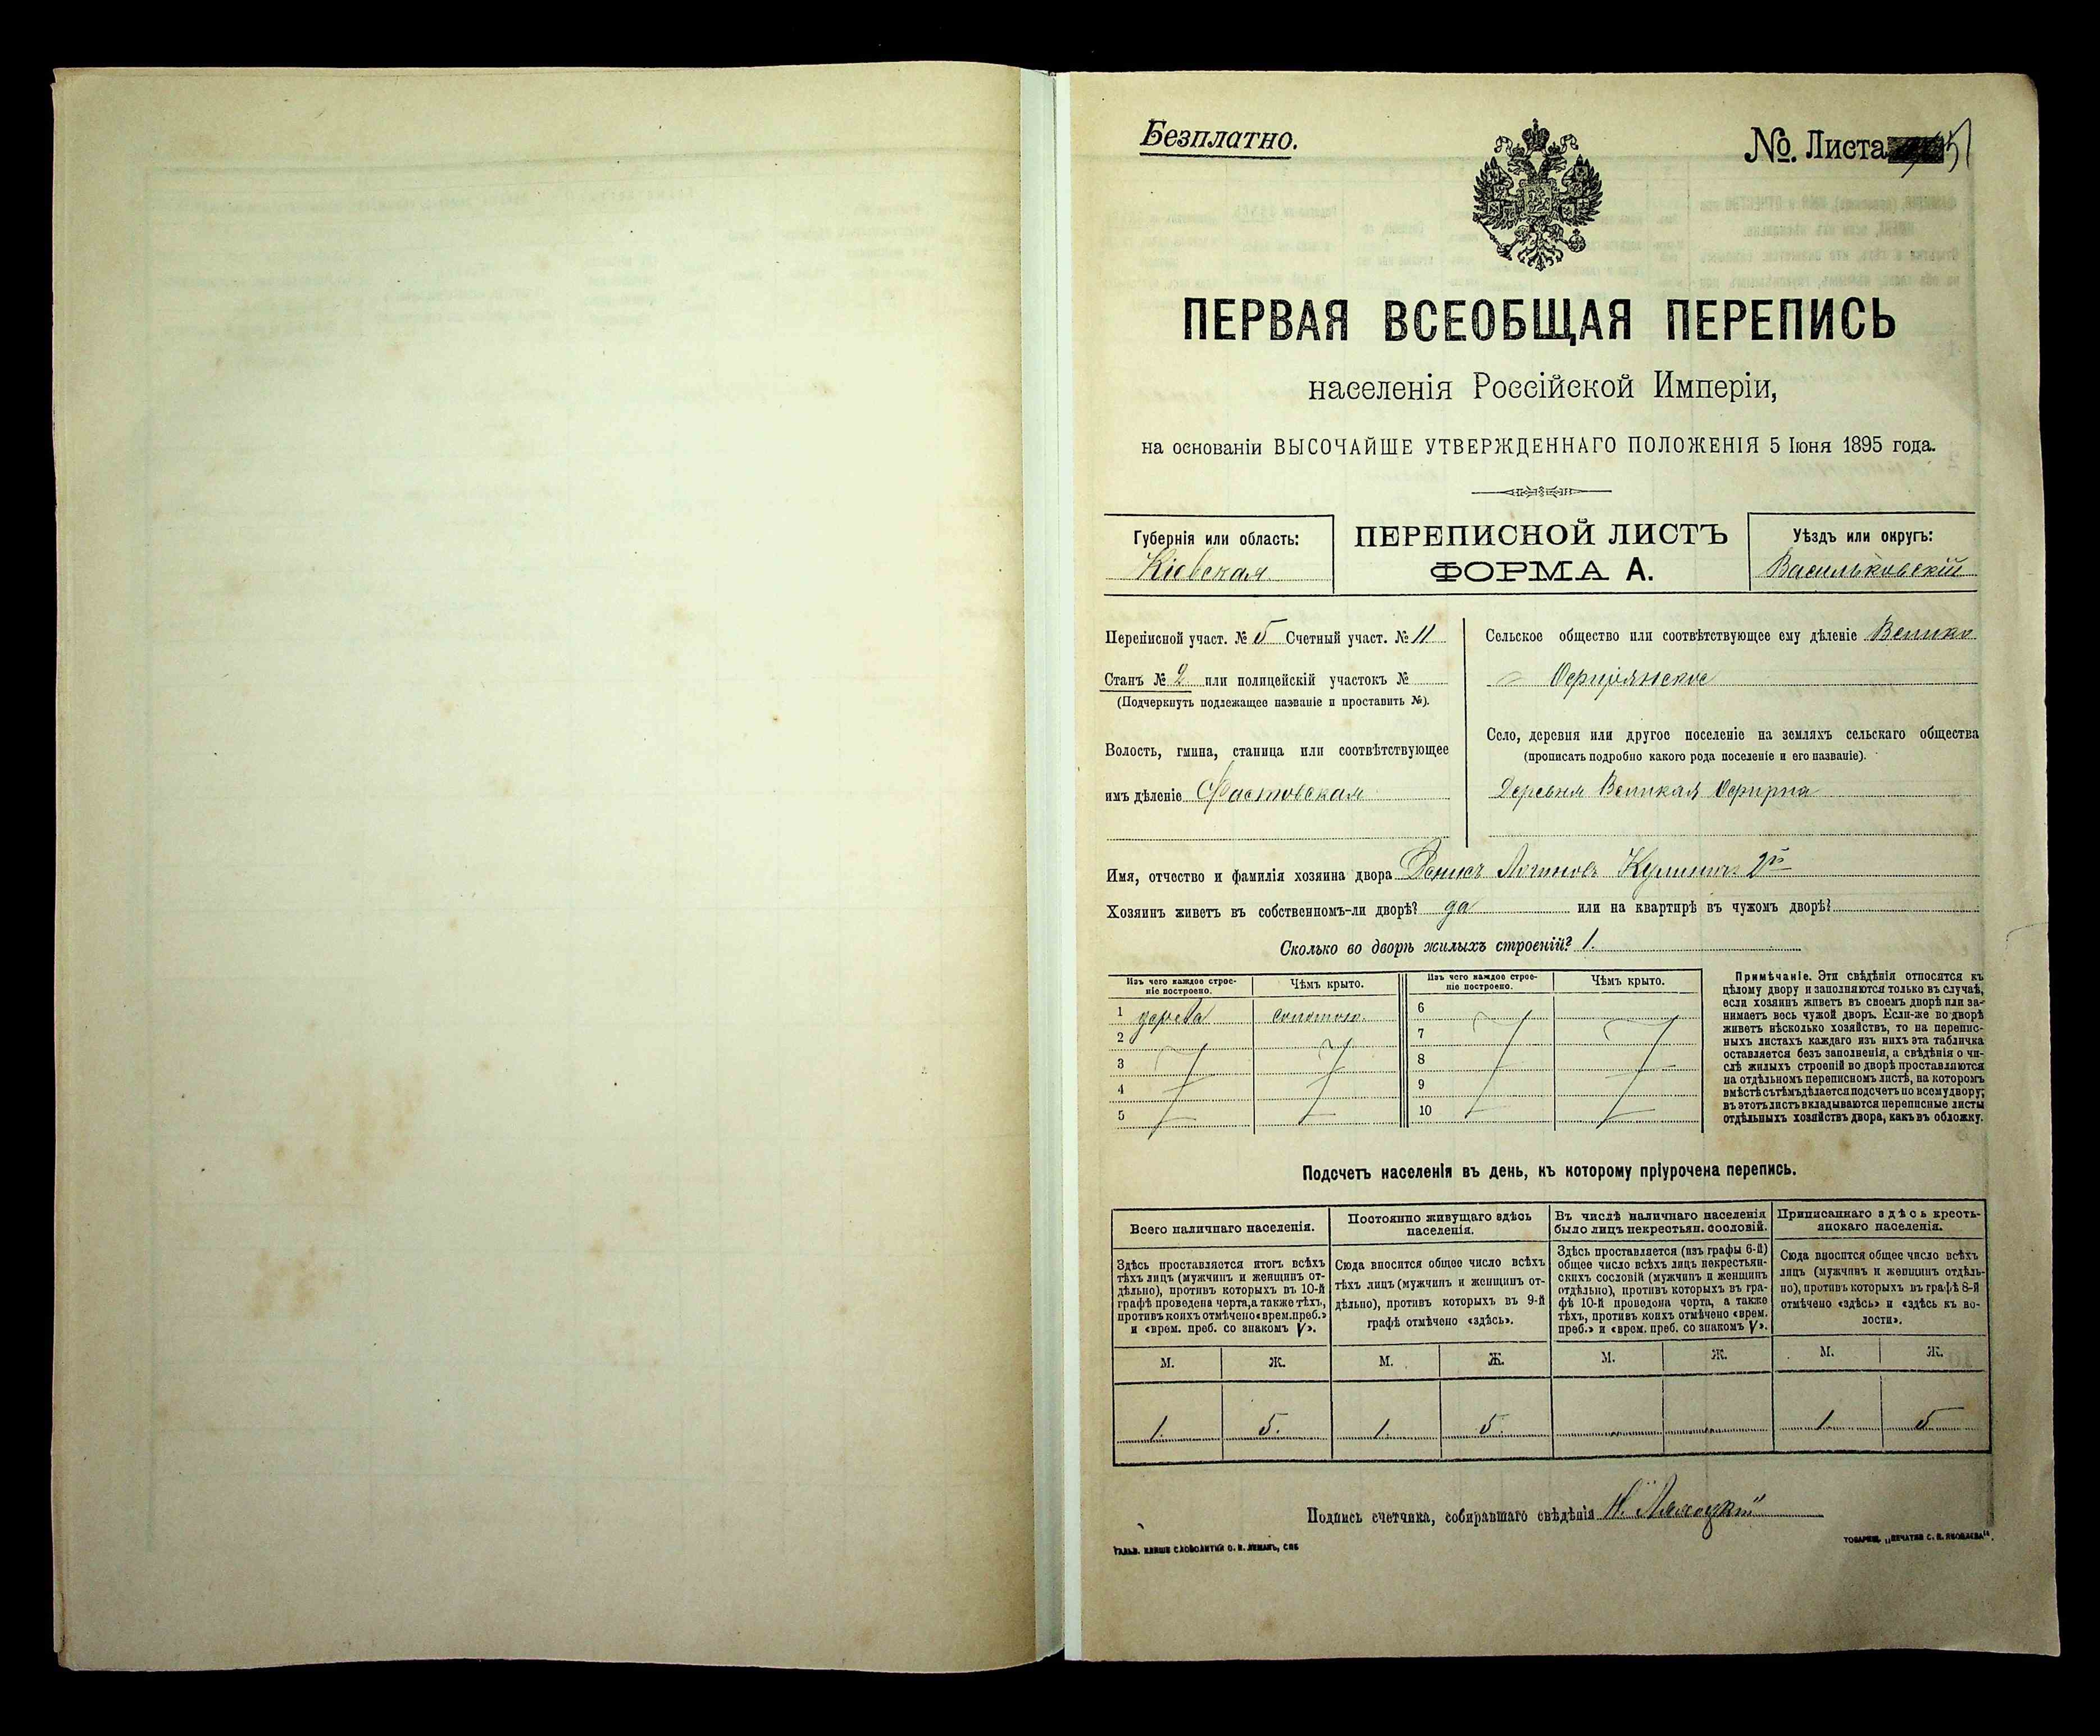 Безплатно.
№. Листа
ПЕРВАЯ ВСЕОБЩАЯ ПЕРЕПИСЬ
населенія Россійской Имперіи,
на основаніи ВЫСОЧАЙШЕ УТВЕРЖДЕННАГО ПОЛОЖЕНІЯ 5 Іюня 1895 года.
Губернія или область:
Кіевская
ПЕРЕПИСНОЙ ЛИСТЪ
ФОРМА А.
Уѣздъ или округъ:
Васильковскій
Переписной участ. № 5 Счетный участ. № 11
Станъ № 2 или полицейскій участокъ №
(Подчеркнуть подлежащее названіе и проставить №).
Волость, гмина, станица или соотвѣтствующее
имъ дѣленіе Фастовская
Сельское общество или соотвѣтствующее ему дѣленіе Велико
Офирянское
Село, деревня или другое поселеніе на земляхъ сельскаго общества
(прописать подробно какого рода поселеніе и его названіе).
Деревня Великая Офирна
Имя, отчество и фамилія хозяина двора Логиновъ 2й
Хозяинъ живетъ въ собственномъ-ли дворѣ? да или на квартирѣ въ чужомъ дворѣ?
Сколько во дворѣ жилыхъ строеній? 1.
Изъ чего каждое строе-
ніе построено.
Чѣмъ крыто.
Изъ чего каждое строе-
ніе построено.
Чѣмъ крыто.
1 дерева соломою
2
3
4
5
6
7
8
9
10
Примѣчаніе. Эти свѣдѣнія относятся къ
цѣлому двору и заполняются только въ случаѣ,
если хозяинъ живетъ въ своемъ дворѣ или за-
нимаетъ весь чужой дворъ. Если-же во дворѣ
живетъ нѣсколько хозяйствъ, то на перепис-
ныхъ листахъ каждаго изъ нихъ эта табличка
оставляется безъ заполненія, а свѣдѣнія о чи-
слѣ жилыхъ строеній во дворѣ проставляются
на отдѣльномъ переписномъ листѣ, на которомъ
вмѣстѣ съ тѣмъ дѣлается подсчетъ по всему двору;
въ этотъ листъ вкладываются переписные листы
отдѣльныхъ хозяйствъ двора, какъ въ обложку.
Подсчетъ населенія въ день, къ которому пріурочена перепись.
Всего наличнаго населенія.
Здѣсь проставляется итогъ всѣхъ
тѣхъ лицъ (мужчинъ и женщинъ от-
дѣльно), противъ которыхъ въ 10-й
графѣ проведена черта, а также тѣхъ,
противъ коихъ отмѣчено «врем. преб.»
и «врем. преб. со знакомъ V».
Постоянно живущаго здѣсь
населенія.
Сюда вносится общее число всѣхъ
тѣхъ лицъ (мужчинъ и женщинъ от-
дѣльно), противъ которыхъ въ 9-й
графѣ отмѣчено «здѣсь».
Въ числѣ наличнаго населенія
было лицъ некрестьян. сословій.
Здѣсь проставляется (изъ графы 6-й)
общее число всѣхъ лицъ некрестьян-
скихъ сословій (мужчинъ и женщинъ
отдѣльно), противъ которыхъ въ гра-
фѣ 10-й проведена черта, а также
тѣхъ, противъ коихъ отмѣчено «врем.
преб.» и «врем. преб. со знакомъ V».
Приписаннаго здѣсь кресть-
янскаго населенія.
Сюда вносится общее число всѣхъ
лицъ (мужчинъ и женщинъ отдѣль-
но), противъ которыхъ въ графѣ 8-й
отмѣчено «здѣсь» и «здѣсь къ во-
лости».
М. Ж. М. Ж. М. Ж. М. Ж.
1. 5. 1. 5. 1. 5
Подпись счетчика, собиравшаго свѣдѣнія
ГАЛЬВ. КЛИШЕ СЛОВОЛИТНИ О. И. ЛЕМАНЪ, СПБ
ТОВАРИЩ. „ПЕЧАТНЯ С. П. ЯКОВЛЕВА“.